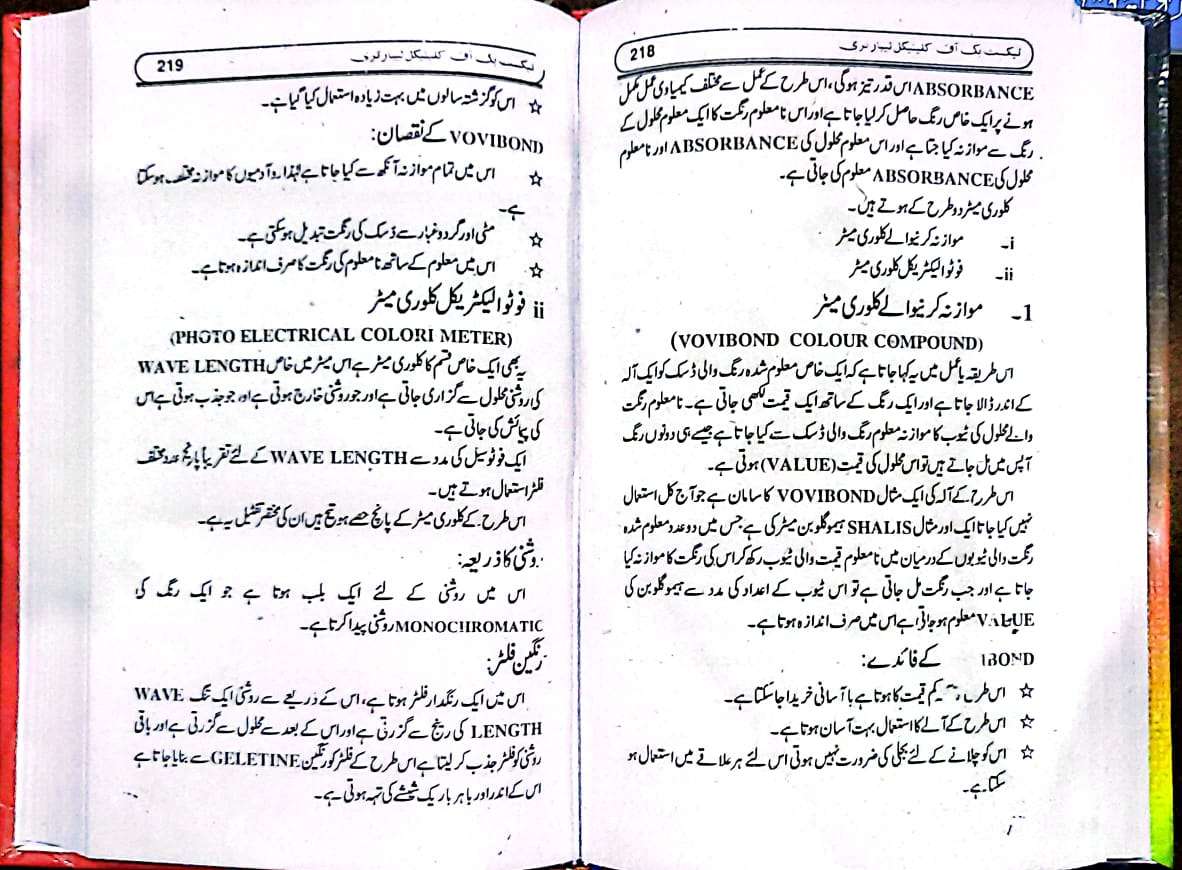 218 ٹیکسٹ بک آف کلینیکل لیبارٹری
ABSORBANCE اس قدر تیز ہوگی، اس طرح کے عمل سے مختلف کیمیاوی عمل مکمل
ہونے پر ایک خاص رنگ حاصل کرلیا جاتا ہے اور اس نامعلوم رنگت کا ایک معلوم محلول کے
رنگ سے موازنہ کیا جتا ہے اور اس معلوم محلول کی ABSORBANCE اور نامعلوم
محلول کی ABSORBANCE معلوم کی جاتی ہے۔
کلوری میٹر دو طرح کے ہوتے ہیں۔
i۔ موازنہ کرنیوالے کلوری میٹر
ii۔ فوٹو الیکٹریکل کلوری میٹر
1۔ موازنہ کرنیوالے کلوری میٹر
(VOVIBOND COLOUR COMPOUND)
اس طریقہ یا عمل میں یہ کہا جاتا ہے کہ ایک خاص معلوم شدہ رنگ والی ڈسک کو ایک آلہ
کے اندر ڈالا جاتا ہے اور ایک رنگ کے ساتھ ایک قیمت لکھی جاتی ہے۔ نامعلوم رنگت
والے محلول کی ٹیوب کا موازنہ معلوم رنگ والی ڈسک سے کیا جاتا ہے جیسے ہی دونوں رنگ
آپس میں مل جاتے ہیں تو اس محلول کی قیمت (VALUE) ہوتی ہے۔
اس طرح کے آلہ کی ایک مثال VOVIBOND کا سامان ہے جو آج کل استعمال
نہیں کیا جاتا ایک اور مثال SHALIS ہیموگلوبن میٹر کی ہے جس میں دو عدد معلوم شدہ
رنگت والی ٹیوبوں کے درمیان میں نامعلوم قیمت والی ٹیوب رکھ کر اس کی رنگت کا موازنہ کیا
جاتا ہے اور جب رنگت مل جاتی ہے تو اس ٹیوب کے اعداد کی مدد سے ہیموگلوبن کی
VALUE معلوم ہو جاتی ہے اس میں صرف اندازہ ہوتا ہے۔
IBOND کے فائدے:
☆ اس طرح کم قیمت کا ہوتا ہے باآسانی خریدا جاسکتا ہے۔
☆ اس طرح کے آلے کا استعمال بہت آسان ہوتا ہے۔
☆ اس کو چلانے کے لئے بجلی کی ضرورت نہیں ہوتی اس لئے ہر علاقے میں استعمال ہو
سکتا ہے۔
219 ٹیکسٹ بک آف کلینیکل لیبارٹری
☆ اس کو گزشتہ سالوں میں بہت زیادہ استعمال کیا گیا ہے۔
VOVIBOND کے نقصان:
☆ اس میں تمام موازنہ آنکھ سے کیا جاتا ہے لہٰذا دو آدمیوں کا موازنہ مختصہ ہوسکتا
ہے۔
☆ مٹی اور گرد و غبار سے ڈسک کی رنگت تبدیل ہوسکتی ہے۔
☆ اس میں معلوم کے ساتھ نامعلوم کی رنگت کا صرف اندازہ ہوتا ہے۔
ii فوٹو الیکٹریکل کلوری میٹر
(PHOTO ELECTRICAL COLORI METER)
یہ بھی ایک خاص قسم کا کلوری میٹر ہے اس میٹر میں خاص WAVE LENGTH
کی روشنی محلول سے گزاری جاتی ہے اور جو روشنی خارج ہوتی ہے اور جو جذب ہوتی ہے اس
کی پیمائش کی جاتی ہے۔
ایک فوٹو سیل کی مدد سے WAVE LENGTH کے لئے تقریباً پانچ عدد مختلف
فلٹر استعمال ہوتے ہیں۔
اس طرح کے کلوری میٹر کے پانچ حصے ہوتے ہیں ان کی مختصر تفصیل یہ ہے۔
روشنی کا ذریعہ:
اس میں روشنی کے لئے ایک بلب ہوتا ہے جو ایک رنگ کی
MONOCHROMATIC روشنی پیدا کرتا ہے۔
رنگین فلٹر:
اس میں ایک رنگدار فلٹر ہوتا ہے، اس کے ذریعے سے روشنی ایک تنگ WAVE
LENGTH کی رینج سے گزرتی ہے اور اس کے بعد سے محلول سے گزرتی ہے اور باقی
روشنی کو فلٹر جذب کر لیتا ہے اس طرح کے فلٹر کو رنگین GELETINE سے بنایا جاتا ہے
اس کے اندر اور باہر باریک شیشے کی تہہ ہوتی ہے۔